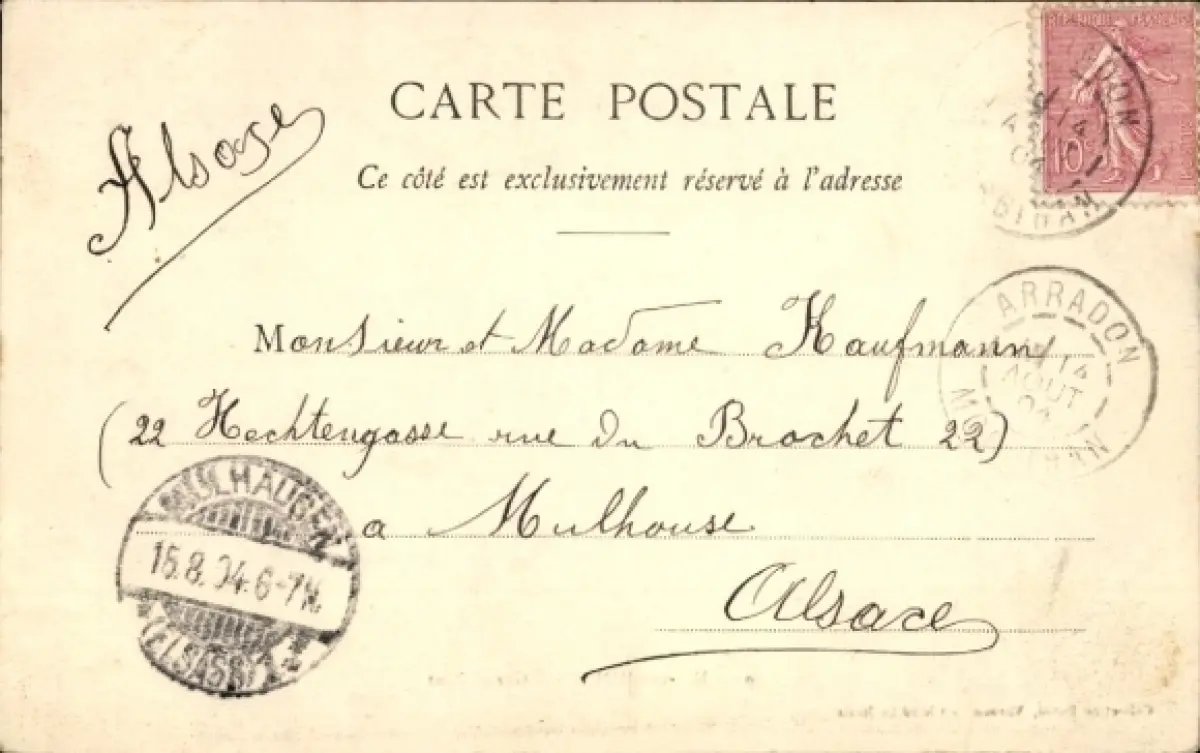 REPUBLIQUE FRANÇAISE
10c
CARTE POSTALE
Alsace
Ce côté est exclusivement réservé à l'adresse
ARRADON
14
AOUT
04
Monsieur et Madame Kaufmann
(22 Hechtengasse rue du Brochet 22)
MÜLHAUSEN
15.8.04.6-7N.
(ELSASS)
a Mulhouse
Alsace